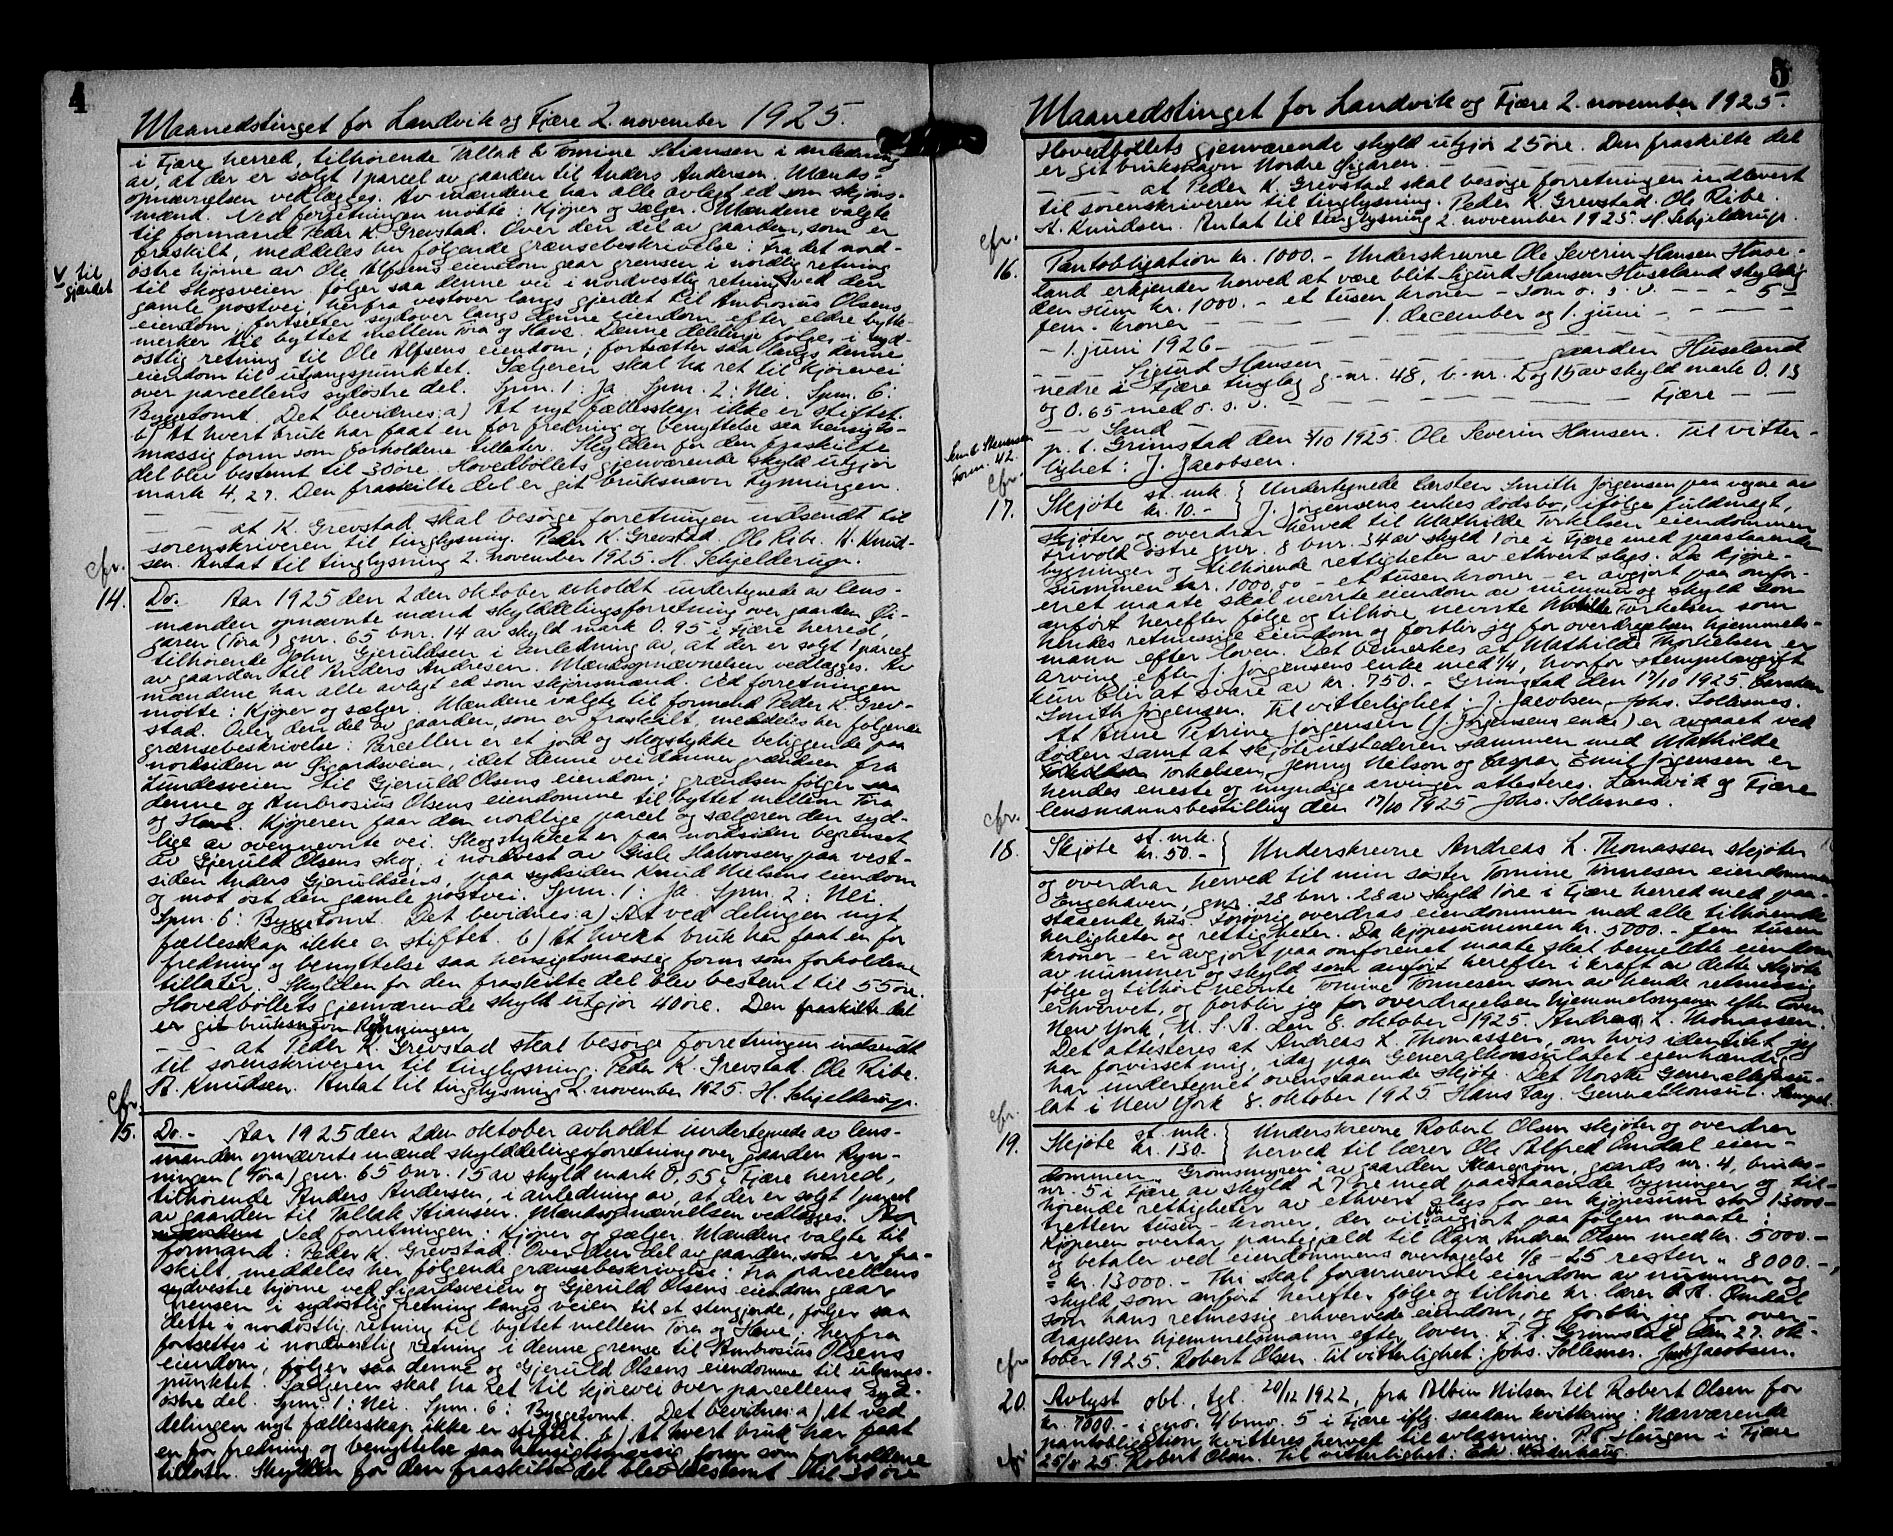 4
Maanedstinget for Landvik og Fjære 2. november 1925.
i Fjære herred, tilhørende Tallak & Tomine Stiansen i anledning
av, at der er solgt 1 parcel av gaarden til Anders Andersen. Mænds-
opnævnelsen vedlægges. Av mændene har alle avlagt ed som skjøns-
mænd. Ved forretningen møtte: Kjøper og sælger. Mændene valgte
til formand Peder K. Grevstad. Over den del av gaarden, som er
fraskilt, meddeles her følgende grænsebeskrivelse: fra det nord-
østre hjørne av Ole Alfsens eiendom gaar grensen i nordlig retning
V til
gjærdet
til Skogsveien følger saa denne vei i nordvestlig retning V ved den
gamle postvei, herfra vestover langs gjerdet til Ambrosius Olsens
eiendom, fortsetter sydover langs denne eiendom efter eldre bytte-
merker til byttet mellem Tøra og Have. Denne deling følges i syd-
østlig retning til Ole Alfsens eiendom; fortsætter saa langs denne
eiendom til utgangspunktet. Sælgeren skal ha ret til kjørevei
over parcellens sydøstre del. Spm. 1: Ja Spm. 2: Nei. Spm. 6:
Byggetomt. Det bevidnes: a) At nyt fællesskap ikke er stiftet.
b) At hvert bruk har faat en for fredning og benyttelse saa hensigts-
mæssig form som forholdene tillater. Skylden for den fraskilte
del blev bestemt til 30 øre. Hovedbøllets gjenværende skyld utgjør
mark 4,27. Den fraskilte del er git bruksnavn Rynningen.
— — at K. Grevstad skal besørge forretningen indsendt til
sorenskriveren til tinglysning. Peder K. Grevstad. Ole Ribe. A. Knud-
sen. Antat til tinglysning 2. november 1925. H. Schjelderup.
cfr.
14.
Do. Aar 1925 den 2den oktober avholdt undertegnede av lens-
manden opnævnte mænd skylddelingsforretning over gaarden Øi-
garen (Tøra) gnr. 65 bnr. 14 av skyld mark 0,95 i Fjære herred,
tilhørende John Gjeruldsen i anledning av, at der er solgt 1 parcel
av gaarden til Anders Andresen. Mændsopnævnelsen vedlægges. Av
mændene har alle avlagt ed som skjønsmænd. Ved forretningen
møtte: Kjøper og sælger. Mændene valgte til formand Peder K. Grev-
stad. Over den del av gaarden, som er fraskilt, meddeles her følgende
grænsebeskrivelse: Parcellen er et jord og skogstykke beliggende paa
nordsiden av Øigardsveien, idet denne vei danner grændsen fra
Lundesveien til Gjeruld Olsens eiendom; grændsen følger saa
denne og Ambrosius Olsens eiendomme til byttet mellem Tøra
og Have. Kjøperen faar den nordlige parcel og sælgeren den syd-
lige av ovennevnte vei. Skogstykket er paa nordsiden begrenset
av Gjeruld Olsens skog, i nordvest av Gisle Halvorsens, paa vest-
siden Anders Gjeruldsens, paa sydsiden Knud Nielsens eiendom
og mot øst den gamle postvei. Spm. 1: Ja. Spm. 2: Nei.
Spm. 6: Byggetomt. Det bevidnes: a) At ved delingen nyt
fællesskap ikke er stiftet. b) At hvert bruk har faat en for
fredning og benyttelse saa hensigtsmæssig form som forholdene
tillater. Skylden for den fraskilte del blev bestemt til 55 øre.
Hovedbøllets gjenværende skyld utgjør 40 øre. Den fraskilte del
er git bruksnavn Rynningen.
— — at Peder K. Grevstad skal besørge forretningen indsendt
til sorenskriveren til tinglysning. Peder K. Grevstad. Ole Ribe.
A. Knudsen. Antat til tinglysning 2. november 1925. H. Schjelderup.
cfr.
15.
Do.- Aar 1925 den 2den oktober avholdt undertegnede av lens-
manden opnævnte mænd skylddelingsforretning over gaarden Ryn-
ningen (Tøra) gnr. 65 bnr. 15 av skyld mark 0,55 i Fjære herred,
tilhørende Anders Andersen, i anledning av, at der er solgt 1 parcel
av gaarden til Tallak Stiansen. Mændsopnævnelsen vedlægges.
Ved forretningen: Kjøper og sælger. Mændene valgte til
formand: Peder K. Grevstad. Over den del av gaarden, som er fra-
skilt, meddeles her følgende grænsebeskrivelse: Fra parcellens
sydvestre hjørne ved Øigardsveien og Gjeruld Olsens eiendom gaar
grensen i sydøstlig retning langs veien til et stengjerde, følger saa
dette i nordøstlig retning til byttet mellem Tøra og Have, herfra
fortsettes i nordvestlig retning i denne grense til Ambrosius Olsens
eiendom, følger saa denne og Gjeruld Olsens eiendomme til utgangs-
punktet. Sælgeren skal ha ret til kjørevei over parcellens syd-
østre del. Spm. 1: Nei. Spm. 6: Byggetomt. Det bevidnes: a) At ved
delingen nyt fællesskap ikke er stiftet. b) At hvert bruk har faat
en for fredning og benyttelse saa hensigtsmæssig form som forholdene
tillater. Skylden for den fraskilte del blev bestemt til 30 øre
5
Maanedstinget for Landvik og Fjære 2. november 1925.
Hovedbøllets gjenværende skyld utgjør 25 øre. Den fraskilte del
er git bruksnavn Nordre Øigaren.
— — at Peder K. Grevstad skal besørge forretningen indlevert
til sorenskriveren til tinglysning. Peder K. Grevstad. Ole Ribe.
A. Knudsen. Antat til tinglysning 2. november 1925. H. Schjelderup.
cfr.
16.
Pantobligation kr. 1000.- Underskrevne Ole Severin Hansen Huse-
land erkjender herved at være blit Sigurd Hansen Huseland skyldig
den sum kr. 1000.- et tusen kroner - som o. s. v. — — — 5 -
fem - kroner — — — 1. december og 1. juni — — —
- 1. juni 1926 — — — gaarden Huseland
Sigurd Hansen
nedre i Fjære tinglag g.-nr. 48, b.-nr. 2 og 15 av skyld mark 0.13
og 0.65 med o. s. v. — — — Fjære — —
— — Sand
p. t. Grimstad den 3/10 1925. Ole Severin Hansen. Til vitter-
lighet: J. Jacobsen.
cfr.
17.
Skjøte st. mk. kr. 10.- } Undertegnede Carsten Smith Jørgensen paa vegne av
J. Jørgensens enkes dødsbo, ifølge fuldmagt,
skjøter og overdrar herved til Mathilde Torkelsen eiendommen
Grivold østre gnr. 8 bnr. 34 av skyld 1 øre i Fjære med paastaaende
bygninger og tilhørende rettigheter av ethvert slags. Da kjøpe-
summen kr. 1000,00 - et tusen kroner - er avgjort paa omfor-
enet maate skal nevnte eiendom av nummer og skyld som
anført herefter følge og tilhøre nevnte Mathilde Torkelsen som
hendes retmessige eiendom og forblir jeg for overdragelsen hjemmels-
mann efter loven. Det bemerkes at Mathilde Thorkelsen er
arving efter J. Jørgensens enke med 1/4, hvorfor stempelavgift
kun blir at svare av kr. 750.- Grimstad den 17/10 1925. Carsten
Smith Jørgensen. Til vitterlighet: J. Jacobsen. Johs. Sollesnes.
At Anne Petrine Jørgensen (J. Jørgensens enke) er avgaaet ved
døden samt at skjøteutstederen sammen med Mathilde
Torkelsen, Jenny Nelson og Caspar Emil Jørgensen er
hendes eneste og myndige arvinger attesteres. Landvik og Fjære
lensmannsbestilling den 17/10 1925 Johs. Sollesnes.
cfr.
18.
Skjøte st. mk. kr. 50.- } Underskrevne Andreas L. Thomassen skjøter
og overdrar herved til min søster Tomine Tønnesen eiendommen
Engehaven, gnr. 28 bnr. 28 av skyld 1 øre i Fjære herred med paa-
staaende hus. Forøvrig overdras eiendommen med alle tilhørende
herligheter og rettigheter. Da kjøpesummen kr. 5000.- fem tusen
kroner - er avgjort paa omforenet maate skal bemeldte eiendom
av nummer og skyld som anført herefter i kraft av dette skjøte
følge og tilhøre nevnte Tomine Tønnesen som av hende retmessig
erhvervet, og forblir jeg for overdragelsen hjemmelsmann efter loven.
New York, U. S. A. den 8. oktober 1925. Andreas L. Thomassen.
Det attesteres at Andreas L. Thomassen, om hvis identitet jeg
har forvisset mig, idag paa Generalkonsulatet egenhændig
har undertegnet ovenstaaende skjøte. Det Norske Generalkonsu-
lat i New York 8. oktober 1925. Hans Fay. Generalkonsul. Stempel.
cfr.
19.
Skjøte st. mk. kr. 130.- } Underskrevne Robert Olsen skjøter og overdrar
herved til lærer Ole Alfred Omdal eien-
dommen "Grømsmyren" av gaarden Skaregrøm, gaards nr. 4, bruks-
nr. 5 i Fjære av skyld 27 øre med paastaaende bygninger og til-
hørende rettigheter av ethvert slags for en kjøpesum stor 13000-
tretten tusen - kroner, der vil bli avgjort paa følgen maate:
Kjøperen overtar pantegjæld til Olga Andrea Olsen med kr. 5000.-
og betaler ved eiendommens overtagelse 1/8 - 25 resten " 8000.-,
= kr. 13000.- Thi skal forannevnte eiendom av nummer og
skyld som anført herefter følge og tilhøre hr. lærer O. A. Omdal
som hans retmessig erhvervede eiendom, og forblir jeg for over-
dragelsen hjemmelsmann efter loven. p. t. Grimstad den 27. ok-
tober 1925. Robert Olsen. Til vitterlighet: Johs. Sollesnes. Jacobsen.
cfr.
20.
Avlyst obl., tgl. 20/12 1922, fra Albin Nilsen til Robert Olsen for
kr. 7000.- i gnr. 4 bnr. 5 i Fjære iflg. saadan kvittering: Nærværende
pantobligation kvitteres herved til avlæsning. P.t. Haugen i Fjære
25/8 25. Robert Olsen. Til vitterlighet:
cfr.